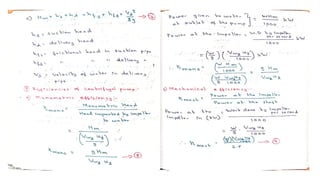 c) Hm = hs + hd + hfs + hfd + Vd²/2g → ③
hs = Suction head
hd = delivery head
hfs = frictional head in suction pipe
hfd = " " " delivery "
Vd = velocity of water in delivery pipe.
Efficiencies of centrifugal pump:-
Manometric efficiency:-
ηmano = Manometric Head / Head imparted by impeller to water
= Hm / (Vw2 u2 / g)
ηmano = g Hm / Vw2 u2 → ④
Power given to water at outlet of the pump = WHm/1000 kW
Power at the impeller = Work by impeller per second / 1000 kW
= (W/g) × (Vw2 u2 / 1000) kW
∴ ηmano = (W Hm / 1000) / (W/g × Vw2 u2 / 1000) = g Hm / Vw2 u2
Mechanical efficiency:-
ηmech = Power at the impeller / Power at the shaft
Power at the impeller in (kW) = Work done by impeller per second / 1000
= W/g Vw2 u2 / 1000